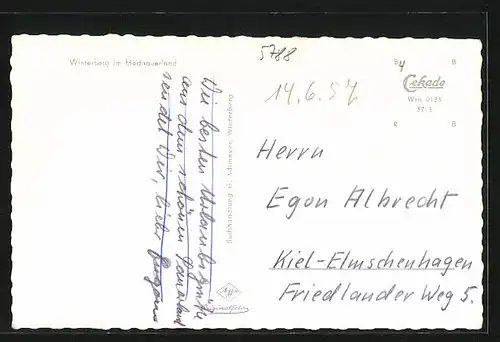 Winterberg im Hochsauerland
5788
14.6.57
B
4
B
Cekade
Win 0125
57:3
R
B
Die besten Urlaubsgrüße
aus dem schönen Sauerland
sendet Dir, lieber
Winterberg
Agfa
Originalfoto
Herrn
Egon Albrecht
Kiel-Elmschenhagen
Friedlander Weg 5.